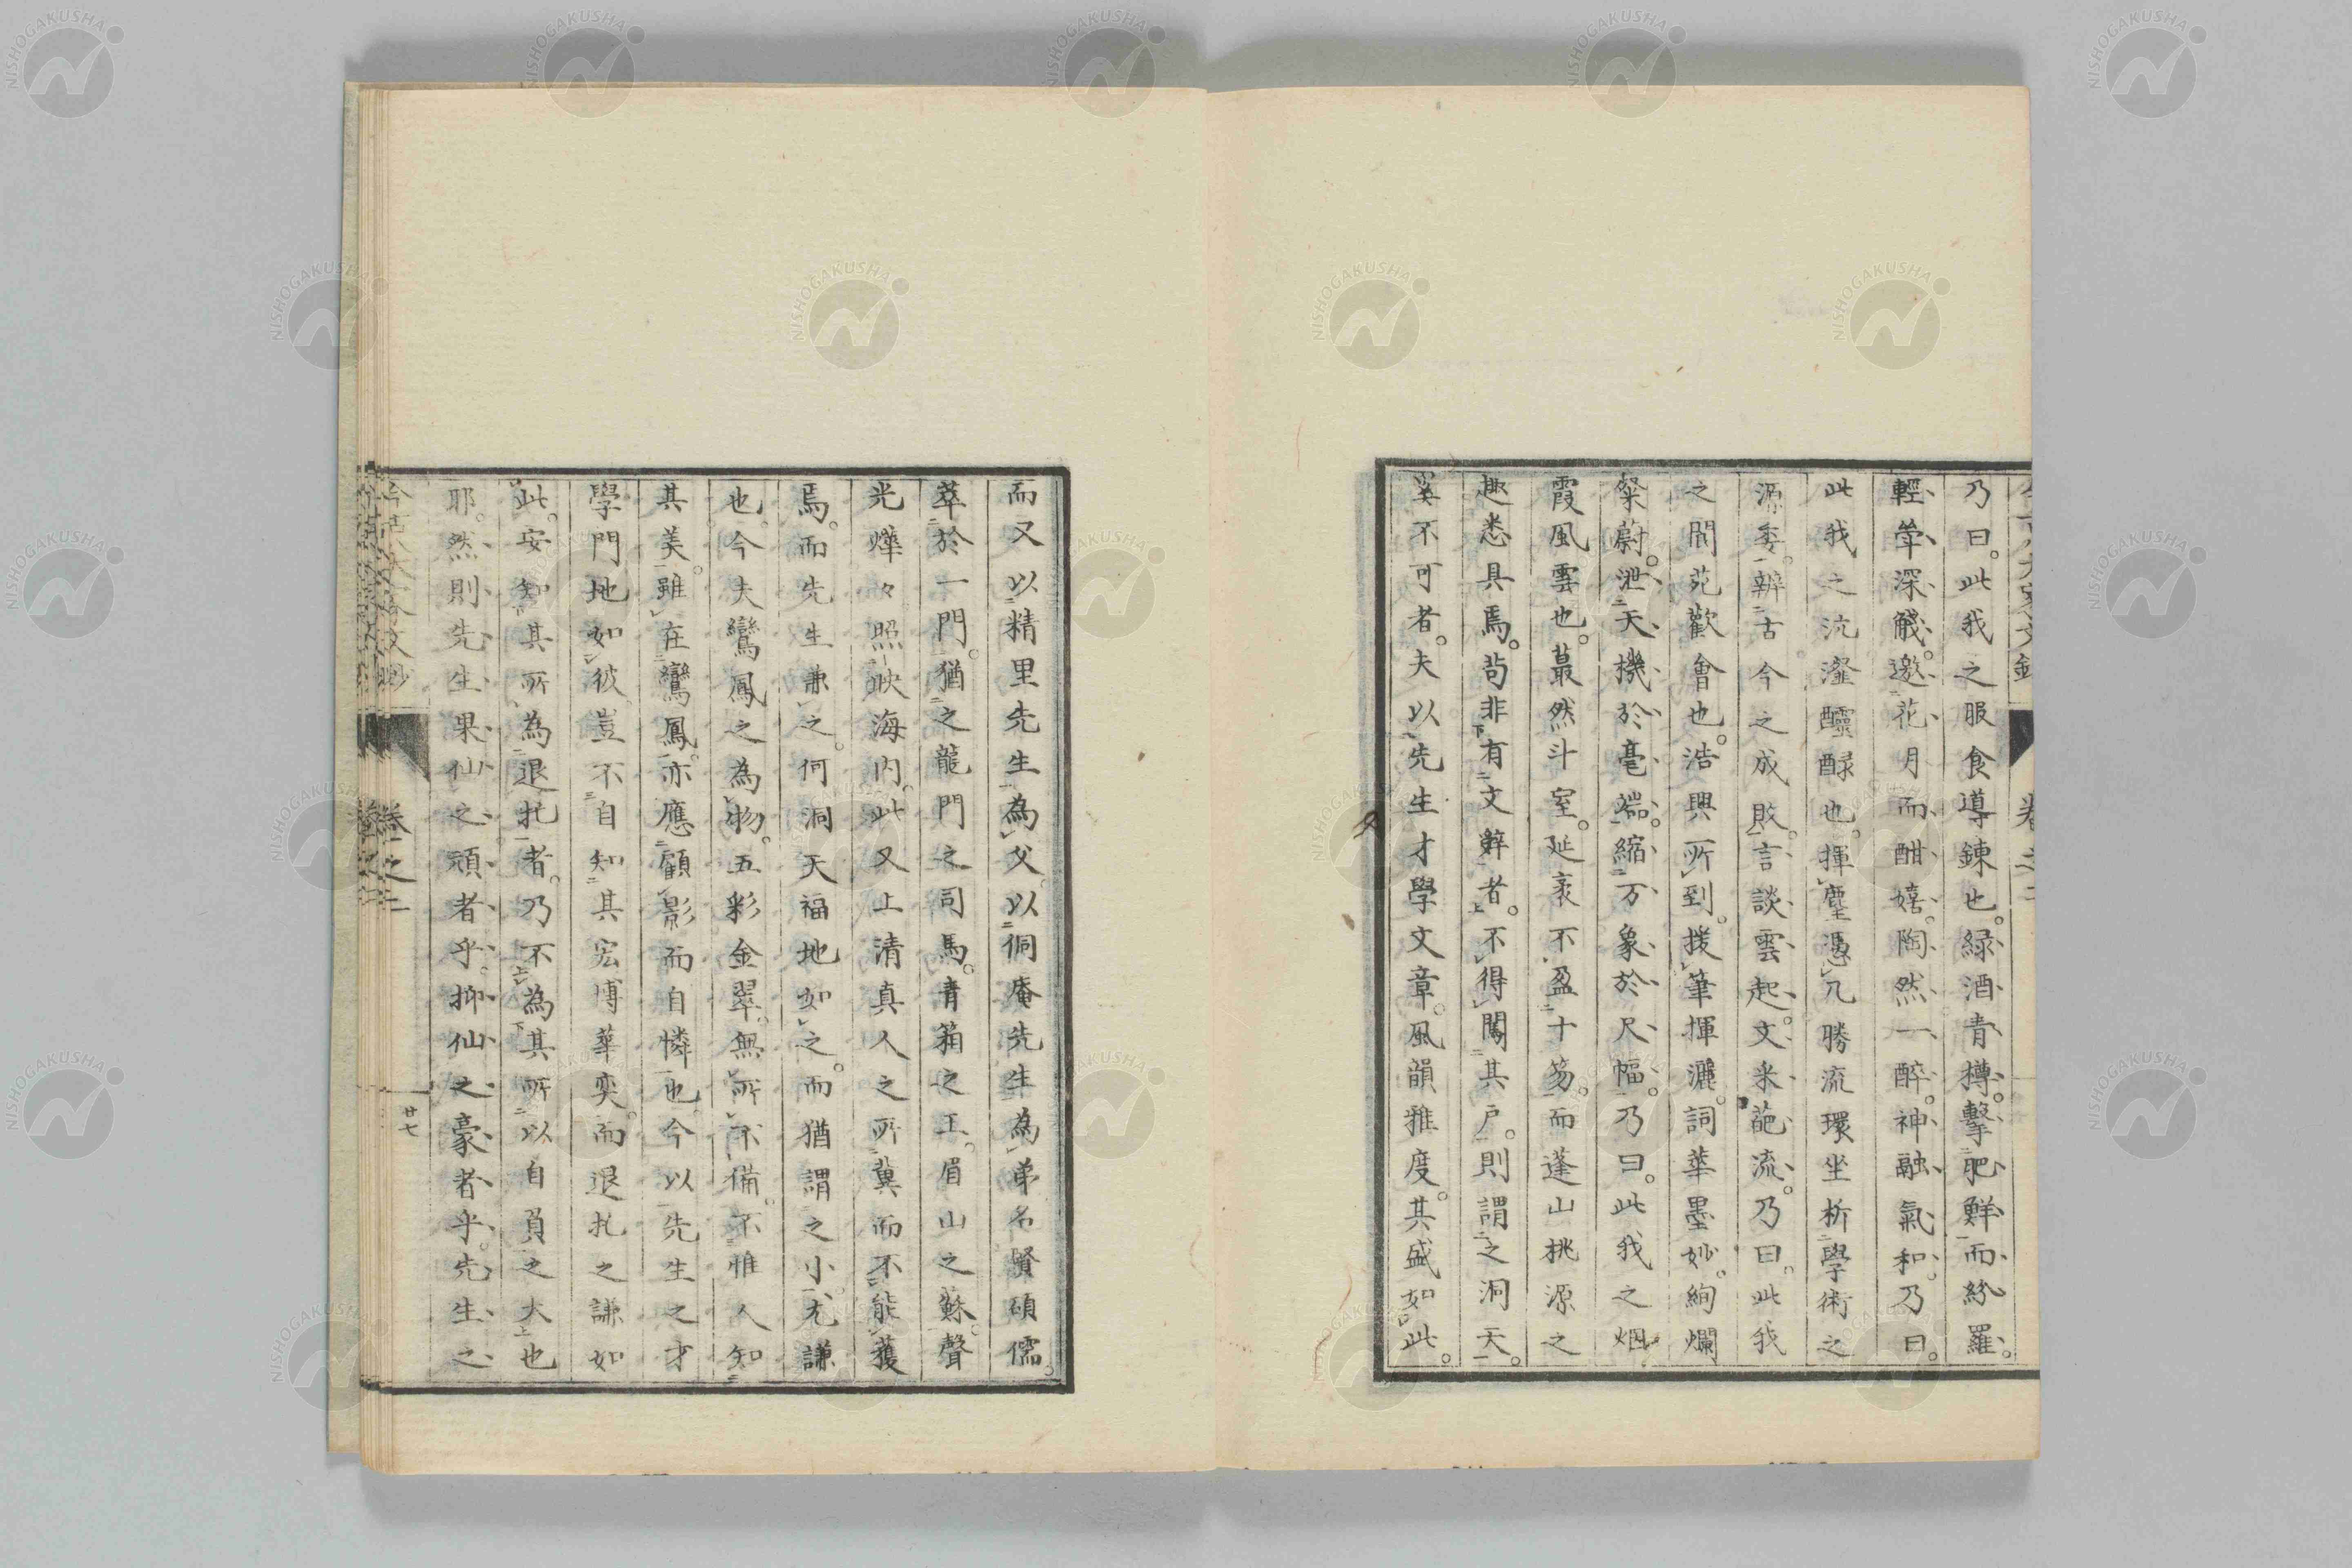 乃曰。此我之服食導錬也。緑酒青樽。撃肥鮮而紛羅。
輕犖深觴。邀花月而酣嬉。陶然一醉。神融氣和。乃曰。
此我之沆瀣醽醁也。揮麈憑几。勝流環坐。析學術之
源委。辨古今之成敗。言談雲起。文米葩流。乃曰。此我
之閬苑歡會也。浩興所到。援筆揮灑。詞華墨妙。絢爛
粲蔚。泄天機於毫端。縮万象於尺幅。乃曰。此我之烟
霞風雲也。蕞然斗室。延袤不盈十笏。而蓬山桃源之
趣悉具焉。苟非有文辭者。不得闖其戸。則謂之洞天。
奚不可者。夫以先生才學文章。風韻雅度。其盛如此。
而又以精里先生為父。以侗庵先生為弟。名賢碩儒。
萃於一門。猶之龍門之司馬。青箱之王。眉山之蘇。聲
光燁々照映海内。此又上清真人之所冀而不能獲
焉。而先生兼之。何洞天福地如之。而猶謂之小。尤謙
也。今夫鸞鳳之為物。五彩金翠。無所不備。不惟人知
其美。雖在鸞鳳。亦應顧影而自憐也。今以先生之才
學門地如彼。豈不自知其宏博華奕。而退托之謙如
此。安知其所為退托者。乃不為其所以自負之大也
耶。然則先生果仙之頑者乎。抑仙之豪者乎。先生之
卷之二
廿七